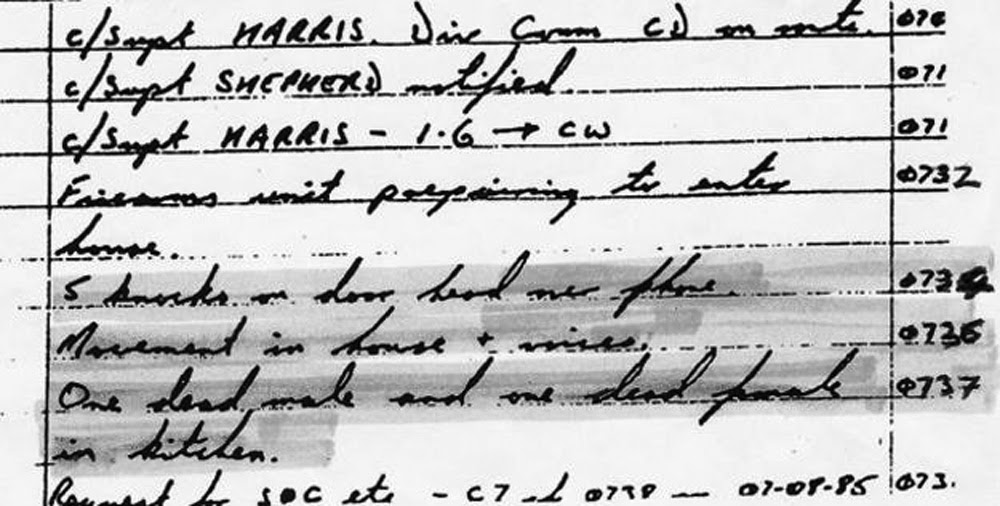 c/Supt HARRIS. Div Comm CD on route. 070
c/Supt SHEPHERD notified. 071
c/Supt HARRIS - 1.6 → CW 071
Firearms unit preparing to enter 0732
house.
5 knocks on door head over phone. 073
Movement in house + voices. 0736
One dead male and one dead female 0737
in kitchen.
Request for SOC etc - C7 0738 — 07-08-85 073.